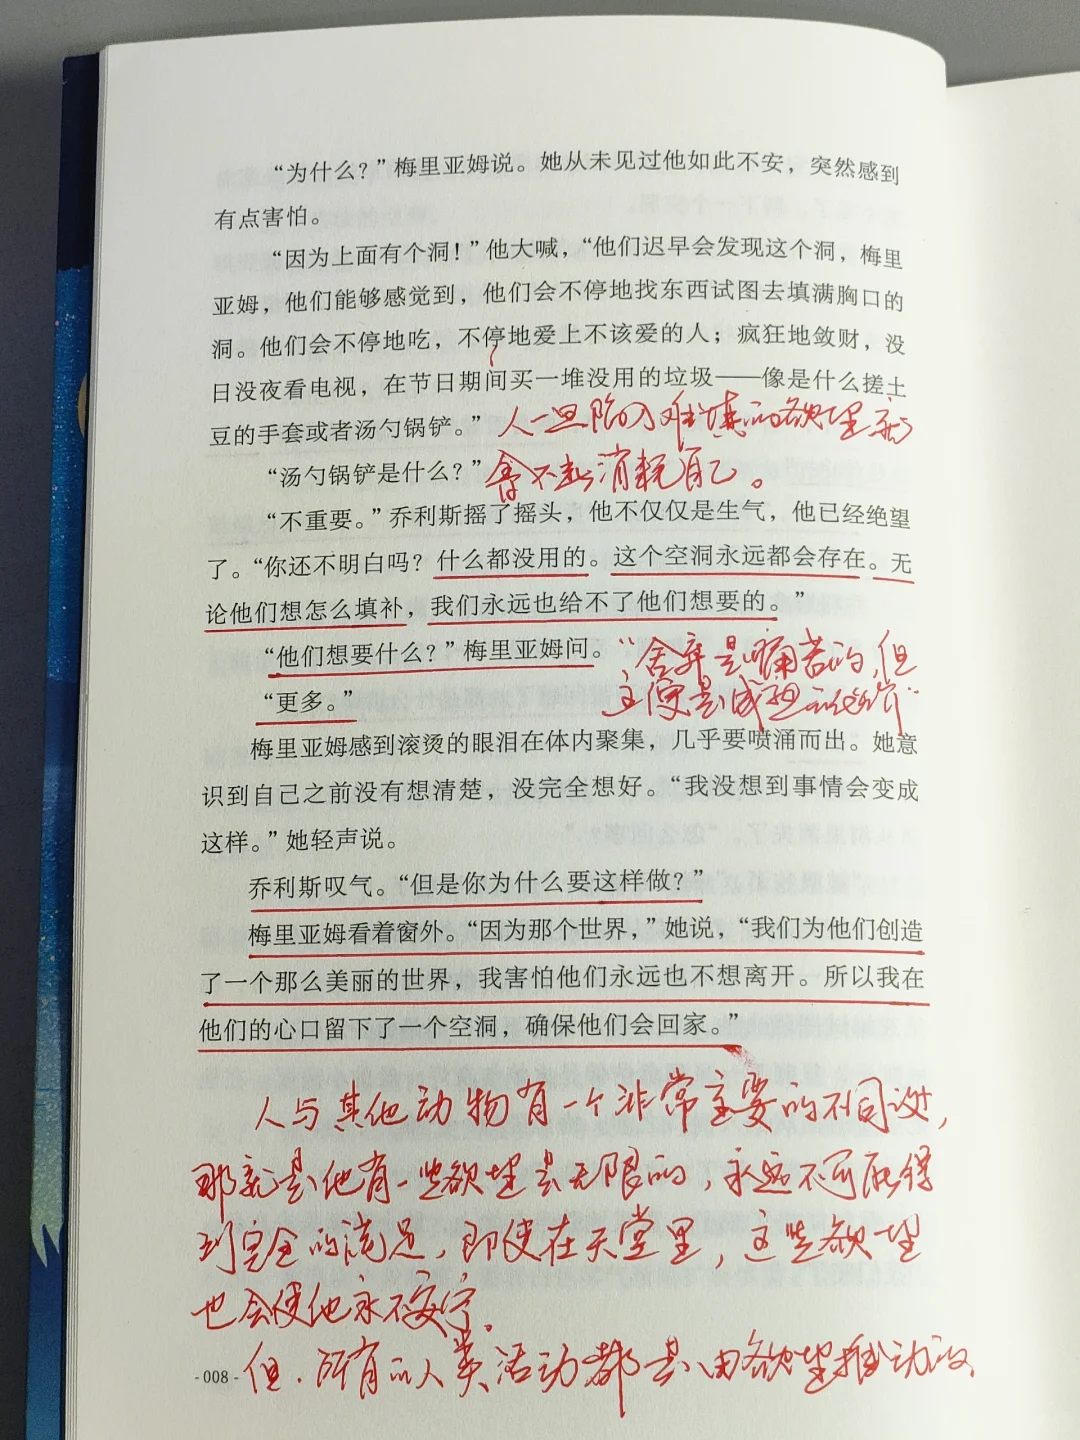 “为什么？”梅里亚姆说。她从未见过他如此不安，突然感到
有点害怕。
“因为上面有个洞！”他大喊，“他们迟早会发现这个洞，梅里
亚姆，他们能够感觉到，他们会不停地找东西试图去填满胸口的
洞。他们会不停地吃，不停地爱上不该爱的人；疯狂地敛财，没
日没夜看电视，在节日期间买一堆没用的垃圾——像是什么搓土
豆的手套或者汤勺锅铲。”
人一旦陷入难填的欲望就
“汤勺锅铲是什么？”
会不断消耗自己。
“不重要。”乔利斯摇了摇头，他不仅仅是生气，他已经绝望
了。“你还不明白吗？什么都没用的。这个空洞永远都会存在。无
论他们想怎么填补，我们永远也给不了他们想要的。”
“他们想要什么？”梅里亚姆问。
“舍弃是痛苦的，但
“更多。”
梅里亚姆感到滚烫的眼泪在体内聚集，几乎要喷涌而出。她意
识到自己之前没有想清楚，没完全想好。“我没想到事情会变成
这样。”她轻声说。
乔利斯叹气。“但是你为什么要这样做？”
梅里亚姆看着窗外。“因为那个世界，”她说，“我们为他们创造
了一个那么美丽的世界，我害怕他们永远也不想离开。所以我在
他们的心口留下了一个空洞，确保他们会回家。”
人与其他动物有一个非常主要的不同说，
那就是他有一些欲望是无限的，永远不可能得
到完全的满足，即使在天堂里，这些欲望
也会使他永不安宁。
但，所有的人类活动都是由欲望推动的
-008-